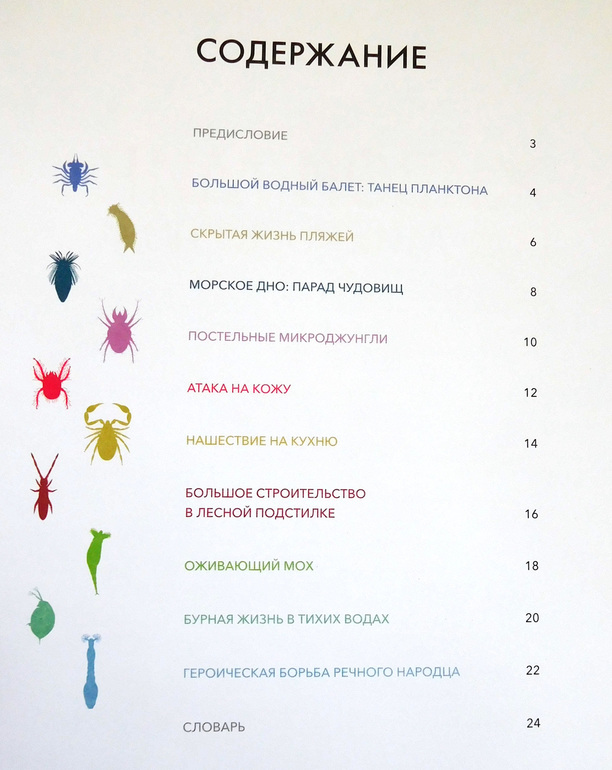 СОДЕРЖАНИЕ
ПРЕДИСЛОВИЕ 3
БОЛЬШОЙ ВОДНЫЙ БАЛЕТ: ТАНЕЦ ПЛАНКТОНА 4
СКРЫТАЯ ЖИЗНЬ ПЛЯЖЕЙ 6
МОРСКОЕ ДНО: ПАРАД ЧУДОВИЩ 8
ПОСТЕЛЬНЫЕ МИКРОДЖУНГЛИ 10
АТАКА НА КОЖУ 12
НАШЕСТВИЕ НА КУХНЮ 14
БОЛЬШОЕ СТРОИТЕЛЬСТВО
В ЛЕСНОЙ ПОДСТИЛКЕ 16
ОЖИВАЮЩИЙ МОХ 18
БУРНАЯ ЖИЗНЬ В ТИХИХ ВОДАХ 20
ГЕРОИЧЕСКАЯ БОРЬБА РЕЧНОГО НАРОДЦА 22
СЛОВАРЬ 24